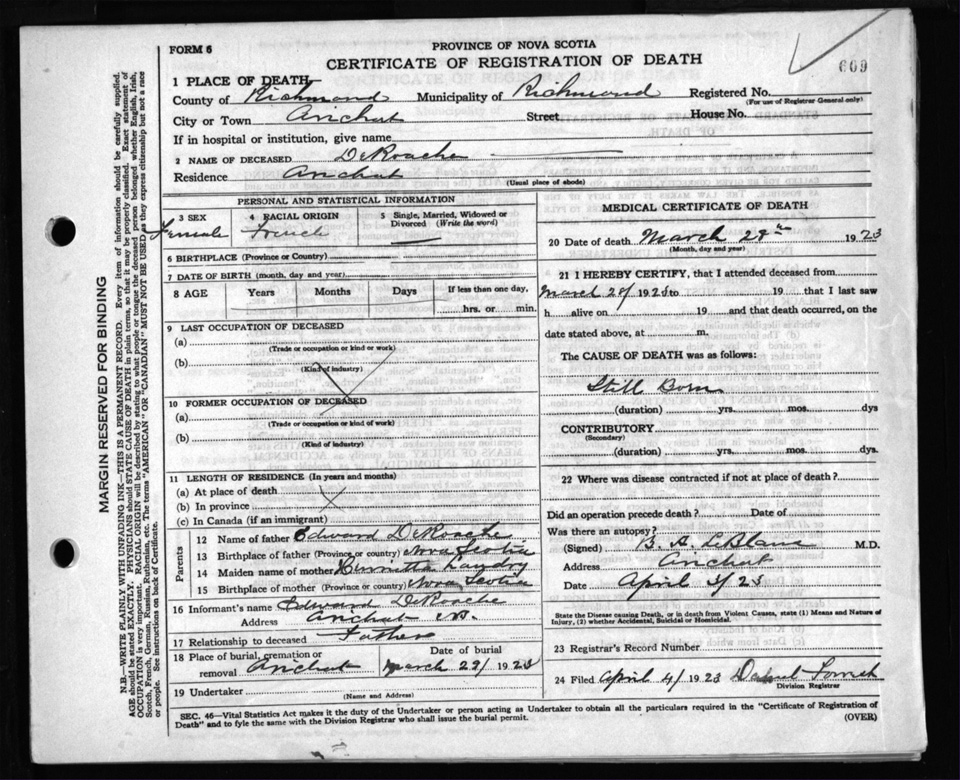 FORM 6
PROVINCE OF NOVA SCOTIA
CERTIFICATE OF REGISTRATION OF DEATH
609
1 PLACE OF DEATH—
County of Richmond Municipality of Richmond Registered No.
(For use of Registrar General only)
City or Town Arichat Street House No.
If in hospital or institution, give name
2 NAME OF DECEASED DeRoache
Residence Arichat
(Usual place of abode)
PERSONAL AND STATISTICAL INFORMATION
3 SEX 4 RACIAL ORIGIN 5 Single, Married, Widowed or Divorced (Write the word)
Female French
6 BIRTHPLACE (Province or Country)
7 DATE OF BIRTH (month, day and year)
8 AGE Years Months Days If less than one day,
hrs. or min.
9 LAST OCCUPATION OF DECEASED
(a)
(Trade or occupation or kind or work)
(b)
(Kind of industry)
10 FORMER OCCUPATION OF DECEASED
(a)
(Trade or occupation or kind of work)
(b)
(Kind of industry)
11 LENGTH OF RESIDENCE (In years and months)
(a) At place of death
(b) In province
(c) In Canada (if an immigrant)
Parents
12 Name of father Edward DeRoache
13 Birthplace of father (Province or country) Nova Scotia
14 Maiden name of mother Landry
15 Birthplace of mother (Province or country) Nova Scotia
16 Informant's name Edward DeRoache
Address Arichat
17 Relationship to deceased Father
18 Place of burial, cremation or removal Arichat Date of burial March 29/ 1923
19 Undertaker
(Name and Address)
MEDICAL CERTIFICATE OF DEATH
20 Date of death March 1923
(Month, day and year)
21 I HEREBY CERTIFY, that I attended deceased from
March 28/ 1923 to 19 that I last saw
h alive on 19 and that death occurred, on the
date stated above, at m.
The CAUSE OF DEATH was as follows:
Still Born
(duration) yrs. mos. dys
CONTRIBUTORY
(Secondary)
(duration) yrs. mos. dys.
22 Where was disease contracted if not at place of death?
Did an operation precede death? Date of
Was there an autopsy?
(Signed) B. A. LeBlanc M.D.
Address Arichat
Date April 3/23
State the Disease causing Death, or in death from Violent Causes, state (1) Means and Nature of
Injury, (2) whether Accidental, Suicidal or Homicidal.
23 Registrar's Record Number
24 Filed April 4/ 1923
Division Registrar
SEC. 46—Vital Statistics Act makes it the duty of the Undertaker or person acting as Undertaker to obtain all the particulars required in the "Certificate of Registration of
Death" and to fyle the same with the Division Registrar who shall issue the burial permit.
(OVER)
MARGIN RESERVED FOR BINDING
N.B.—WRITE PLAINLY WITH UNFADING INK—THIS IS A PERMANENT RECORD. Every item of information should be carefully supplied.
AGE should be stated EXACTLY. PHYSICIANS should STATE CAUSE OF DEATH in plain terms, so that it may be properly classified. Exact statement of
OCCUPATION is very important. RACIAL ORIGIN will be described by stating to what people or tongue the deceased person belonged whether English, Irish,
Scotch, French, German, Russian, Ruthenian, etc. The terms "AMERICAN" OR "CANADIAN" MUST NOT BE USED as they express citizenship but not a race
or people. See instructions on back of Certificate.